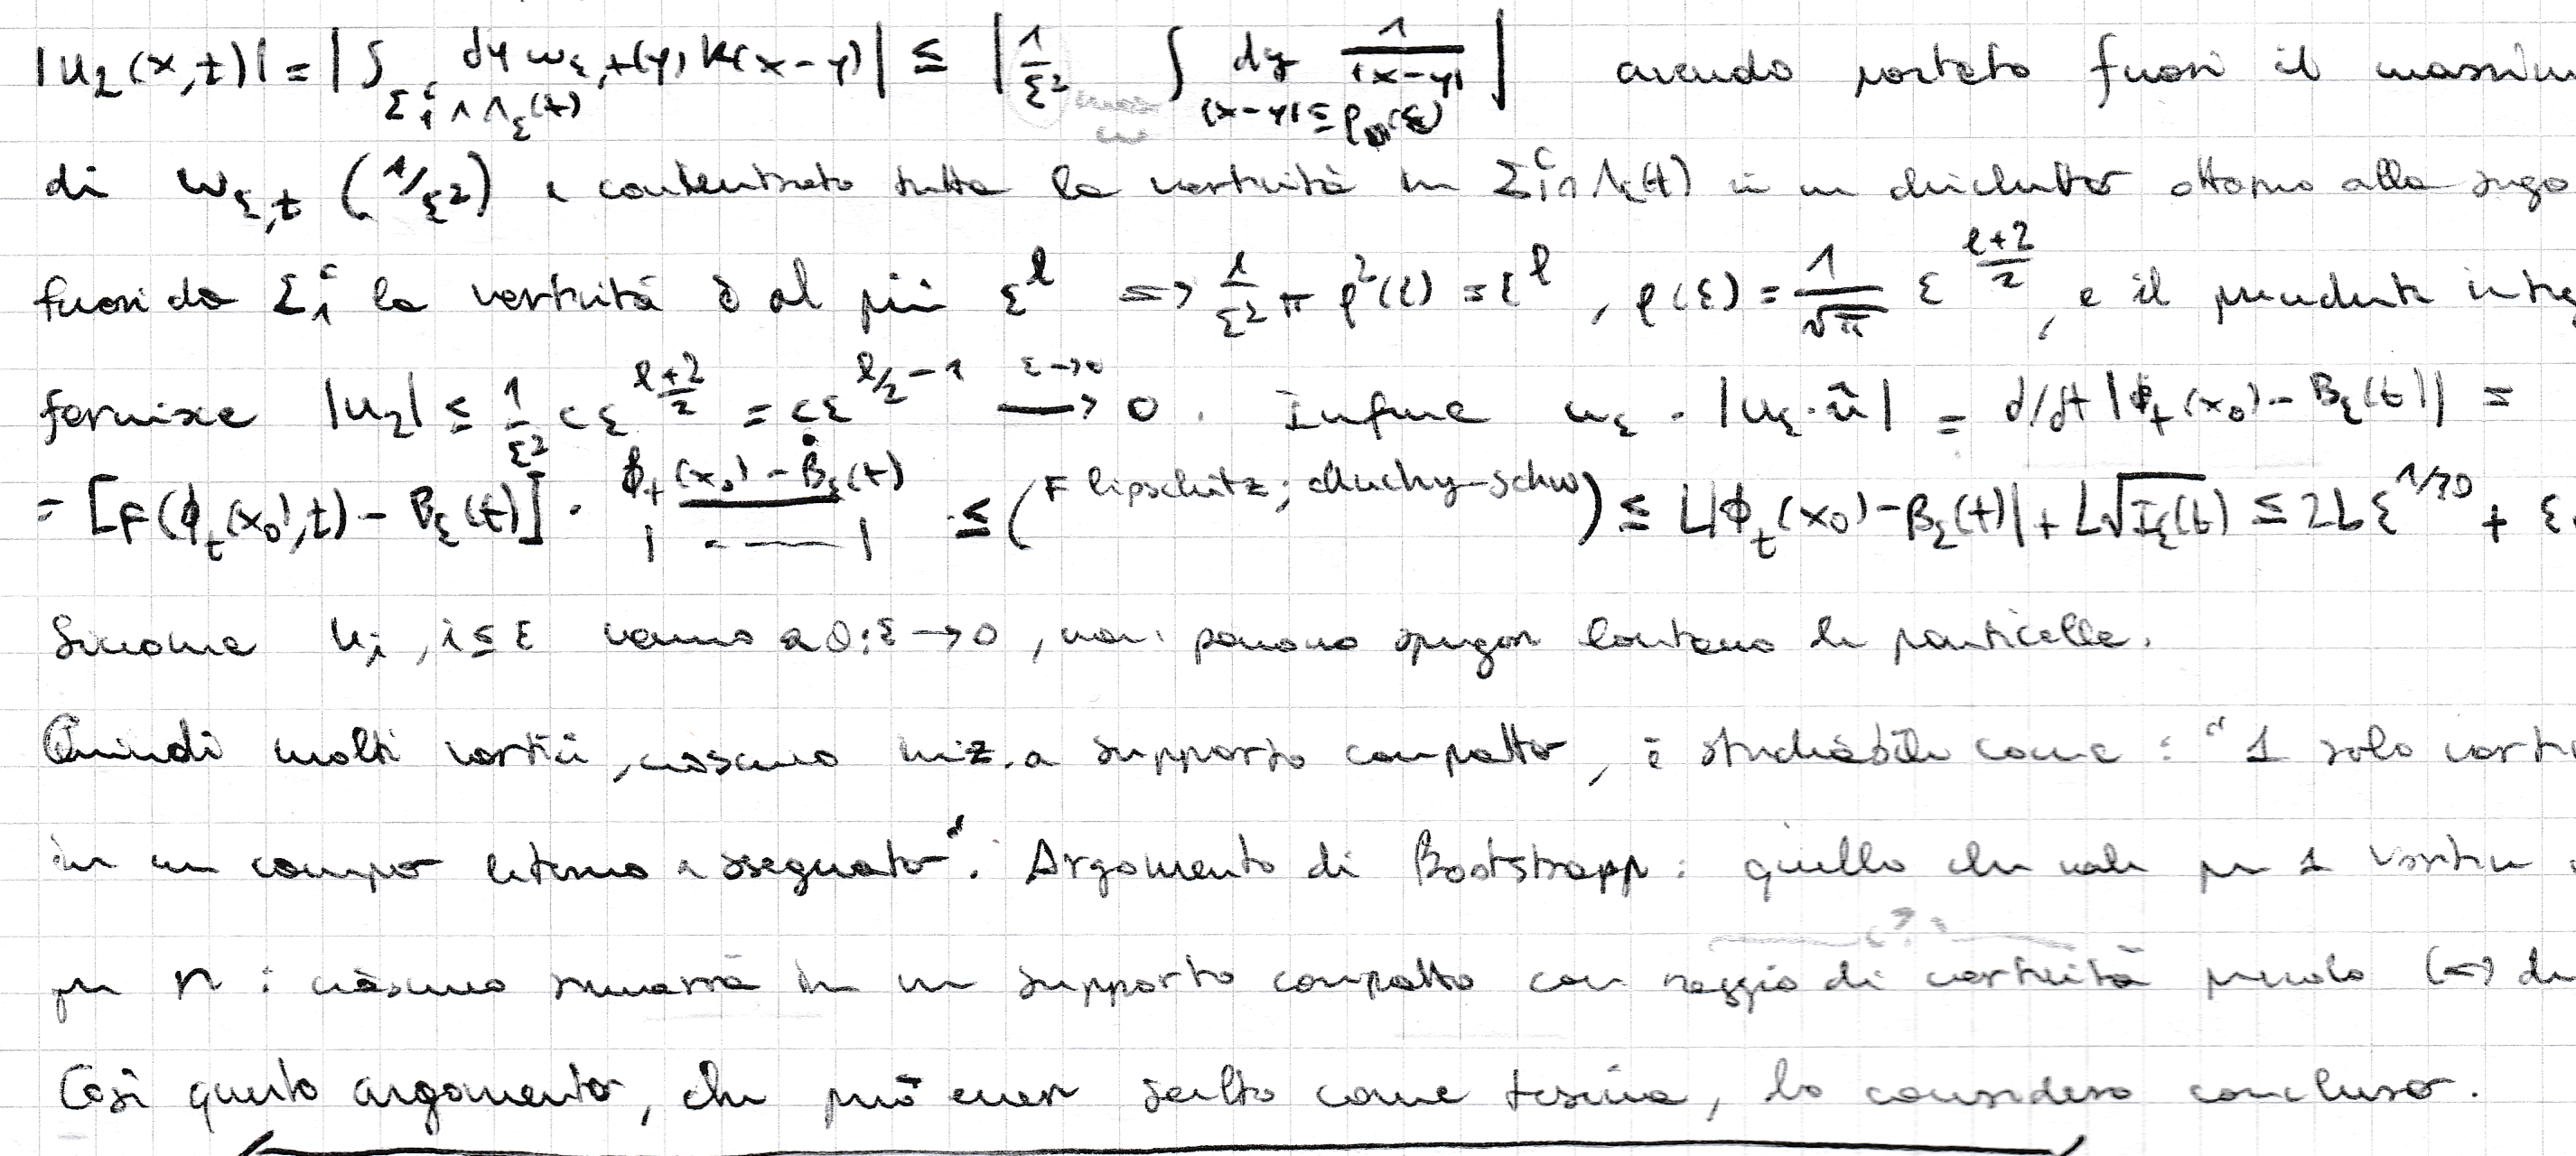 |u₂(x,t)| = |∫_{Σ₁ᶜ∩Λ_ε(t)} dy ω_{ε,t}(y) K(x-y)| ≤ |1/ε² ∫_{|x-y|≤ρ(ε)} dy 1/|x-y|| avendo portato fuori il massim
di ω_{ε,t} (1/ε²) e concentrato tutta la vorticità in Σ₁ᶜ∩Λ_ε(t) in un dischetto attorno alla
fuori da Σ₁ᶜ la vorticità è al più ε^l => 1/ε² π ρ²(ε) = ε^l, ρ(ε) = 1/√π ε^{(l+2)/2}, e il precedente inte
fornisce |u₂| ≤ 1/ε² c ε^{(l+2)/2} = c ε^{l/2-1} → 0 (ε→0). Infine |u_ε·n̂| = d/dt |ϕ_t(x₀) - B_ε(t)| =
= [F(ϕ_t(x₀),t) - Ḃ_ε(t)] · (ϕ_t(x₀) - B_ε(t)) / |·——| ≤ (F lipschitz; chuchy-schw) ≤ L|ϕ_t(x₀) - B_ε(t)| + L√I_ε(t) ≤ 2L ε^{1/30} + ε
Siccome u_i, i≤ε vanno a 0: ε→0, non possono spinger lontano le particelle.
Quindi molti vortici, ciascuno iniz. a supporto compatto, è studiabile come: "1 solo vorti
in un campo esterno assegnato". Argomento di Bootstrapp: quello che vale per 1 vortice
per n: ciascuno rimarrà in un supporto compatto con raggio di vorticità piccolo (=> di
Così questo argomento, che può esser scelto come tesina, lo considero concluso.